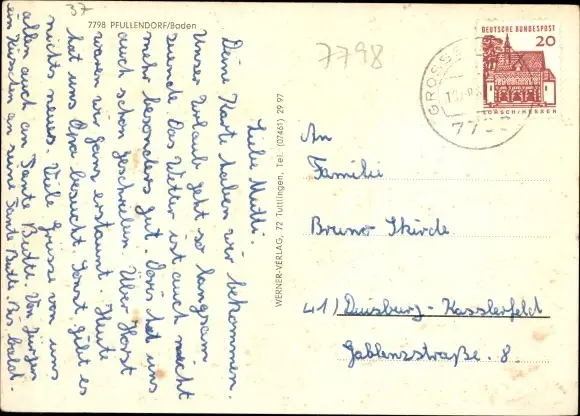 37
7798 PFULLENDORF/Baden
7798
DEUTSCHE BUNDESPOST
20
LORSCH/HESSEN
GROSSS
77
WERNER-VERLAG, 72 Tuttlingen, Tel. (07461) 29 97
Liebe Mutti.
Deine Karte haben wir bekommen.
Unser Urlaub geht so langsam
zuende. Das Wetter ist auch nicht
mehr besonders gut. Doris hat uns
auch schon geschrieben. Über Horst
waren wir ganz erstaunt. Heute
hat uns Opa besucht. Sonst gibt es
nichts neues. Viele Grüsse von uns
allen auch an Tante Betti. Von Jürgen
ein Küsschen an seine Tante Betti. Bis bald.
An
Familie
Bruno Skirde
41 / Duisburg-Kasslerfeld
Gablenzstraße 8.